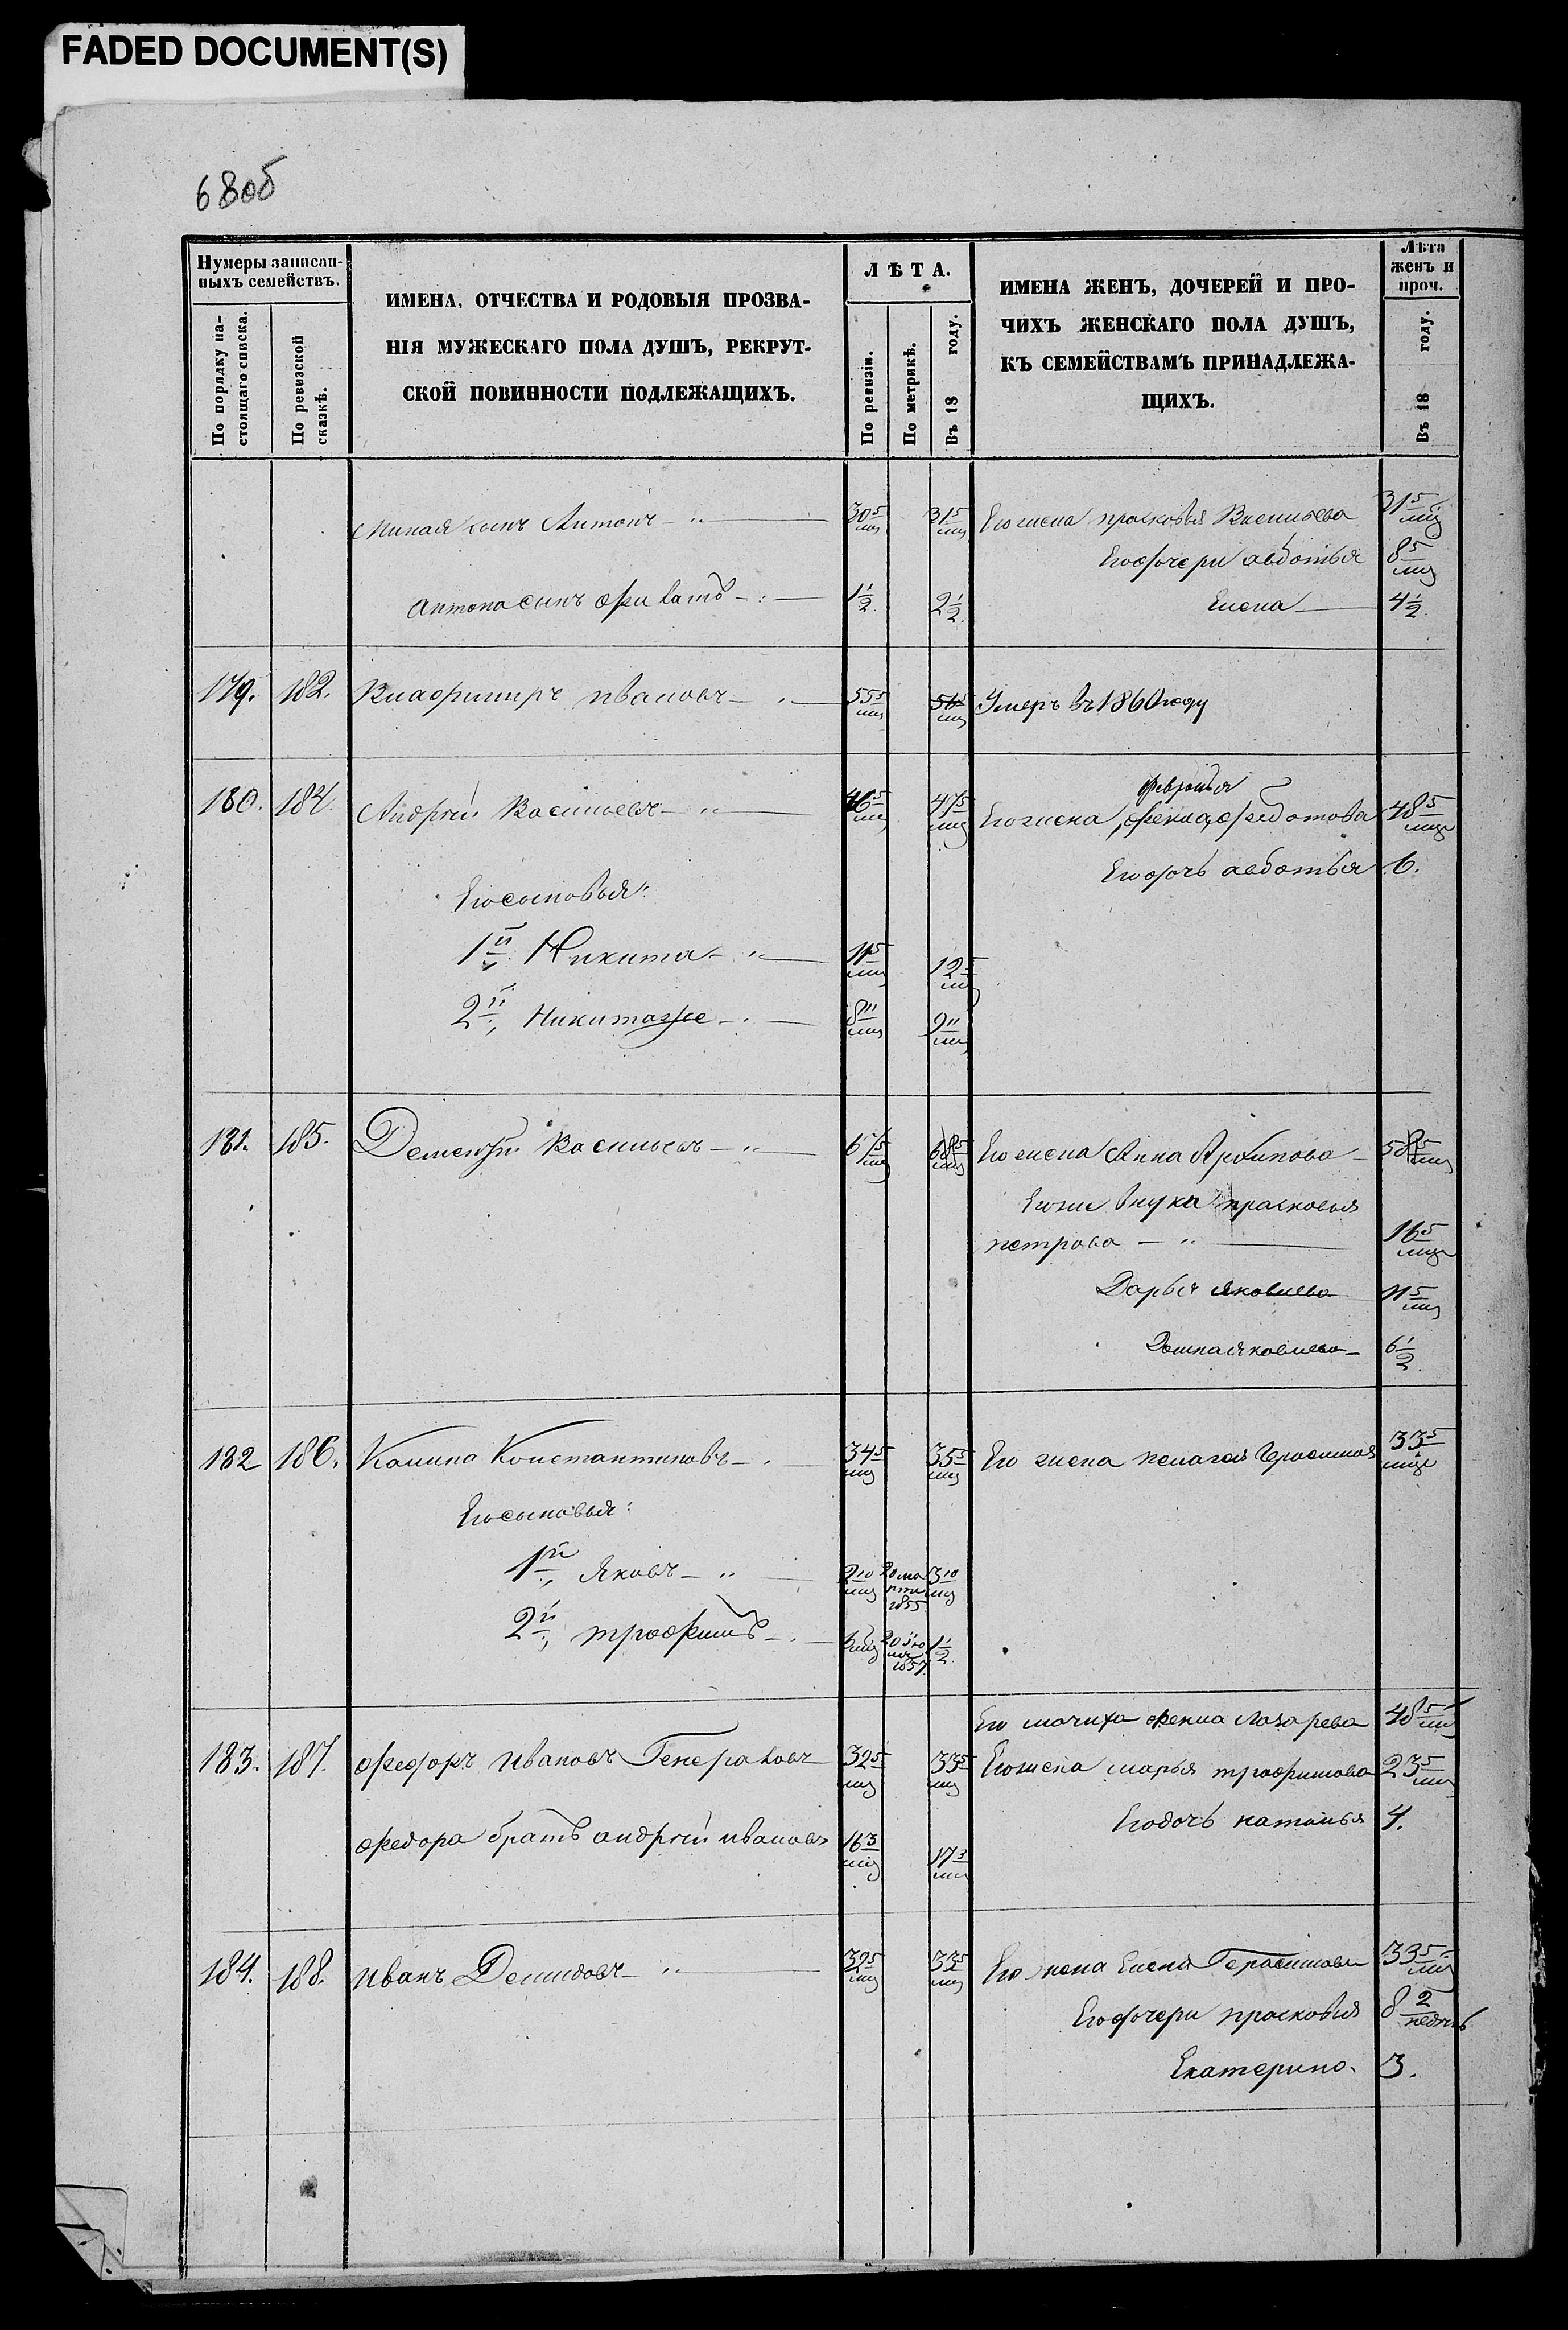 FADED DOCUMENT(S)
68об
Нумеры записан-
ныхъ семействъ.
По порядку на-
стоящаго списка.
По ревизской
сказкѣ.
ИМЕНА, ОТЧЕСТВА И РОДОВЫЯ ПРОЗВА-
НІЯ МУЖЕСКАГО ПОЛА ДУШЪ, РЕКРУТ-
СКОЙ ПОВИННОСТИ ПОДЛЕЖАЩИХЪ.
ЛѢТА.
По ревизіи.
По метрикѣ.
Въ 18 году.
ИМЕНА ЖЕНЪ, ДОЧЕРЕЙ И ПРО-
ЧИХЪ ЖЕНСКАГО ПОЛА ДУШЪ,
КЪ СЕМЕЙСТВАМЪ ПРИНАДЛЕЖА-
ЩИХЪ.
Лѣта
женъ и
проч.
Въ 18 году.
Миная сынъ Антонъ 30 5/мц 31 5/мц Его жена прасковья Васильева 31 5/мц
Его дочери авдотья 8 5/мц
Антона сынъ филатъ 1 1/2 2 1/2 Елена 4 1/2
179. 182. Владимиръ ивановъ 55 5/мц 56 5/мц Умеръ въ 1860 году
февронья
180. 184. Андрѣй Васильевъ 46 5/мц 47 5/мц Его жена, фекла, федотова 48 5/мцъ
Его дочь авдотья 6.
Его сыновья:
1й Никита 11 5/мц 12 5/мц
2й, Никита же 8 11/мц 9 11/мц
181. 185. Дементѣй Васильевъ 67 5/мц 68 5/мц Его жена Анна Архипова 58 5/мц
Его же внука прасковья
петрова 16 5/мцъ
Дарья яковлева 11 5/мц
Домна яковлева 6 1/2
182 186. Калина Константиновъ 34 5/мц 35 5/мц Его жена пелагея Герасимова 33 5/мцъ
Его сыновья:
1й, Яковъ 2 10/мц 20 ма рта 1855 3 10/мц
2й, трофимъ 6 мц 20 iю ля 1857. 1 1/2
Его мачиха фекла Лазарева 48 5/мц
183. 187. федоръ ивановъ Генераловъ 32 5/мц 33 5/мц Его жена марья трофимова 23 5/мц
Его дочь наталья 4.
федора братъ андрѣй ивановъ 16 3/мц 17 3/мц
184. 188. иванъ Демидовъ 32 5/мц 33 5/мц Его жена Елена Герасимова 33 5/мц
Его дочери прасковья 8 2/недѣль
Екатерина. 3.